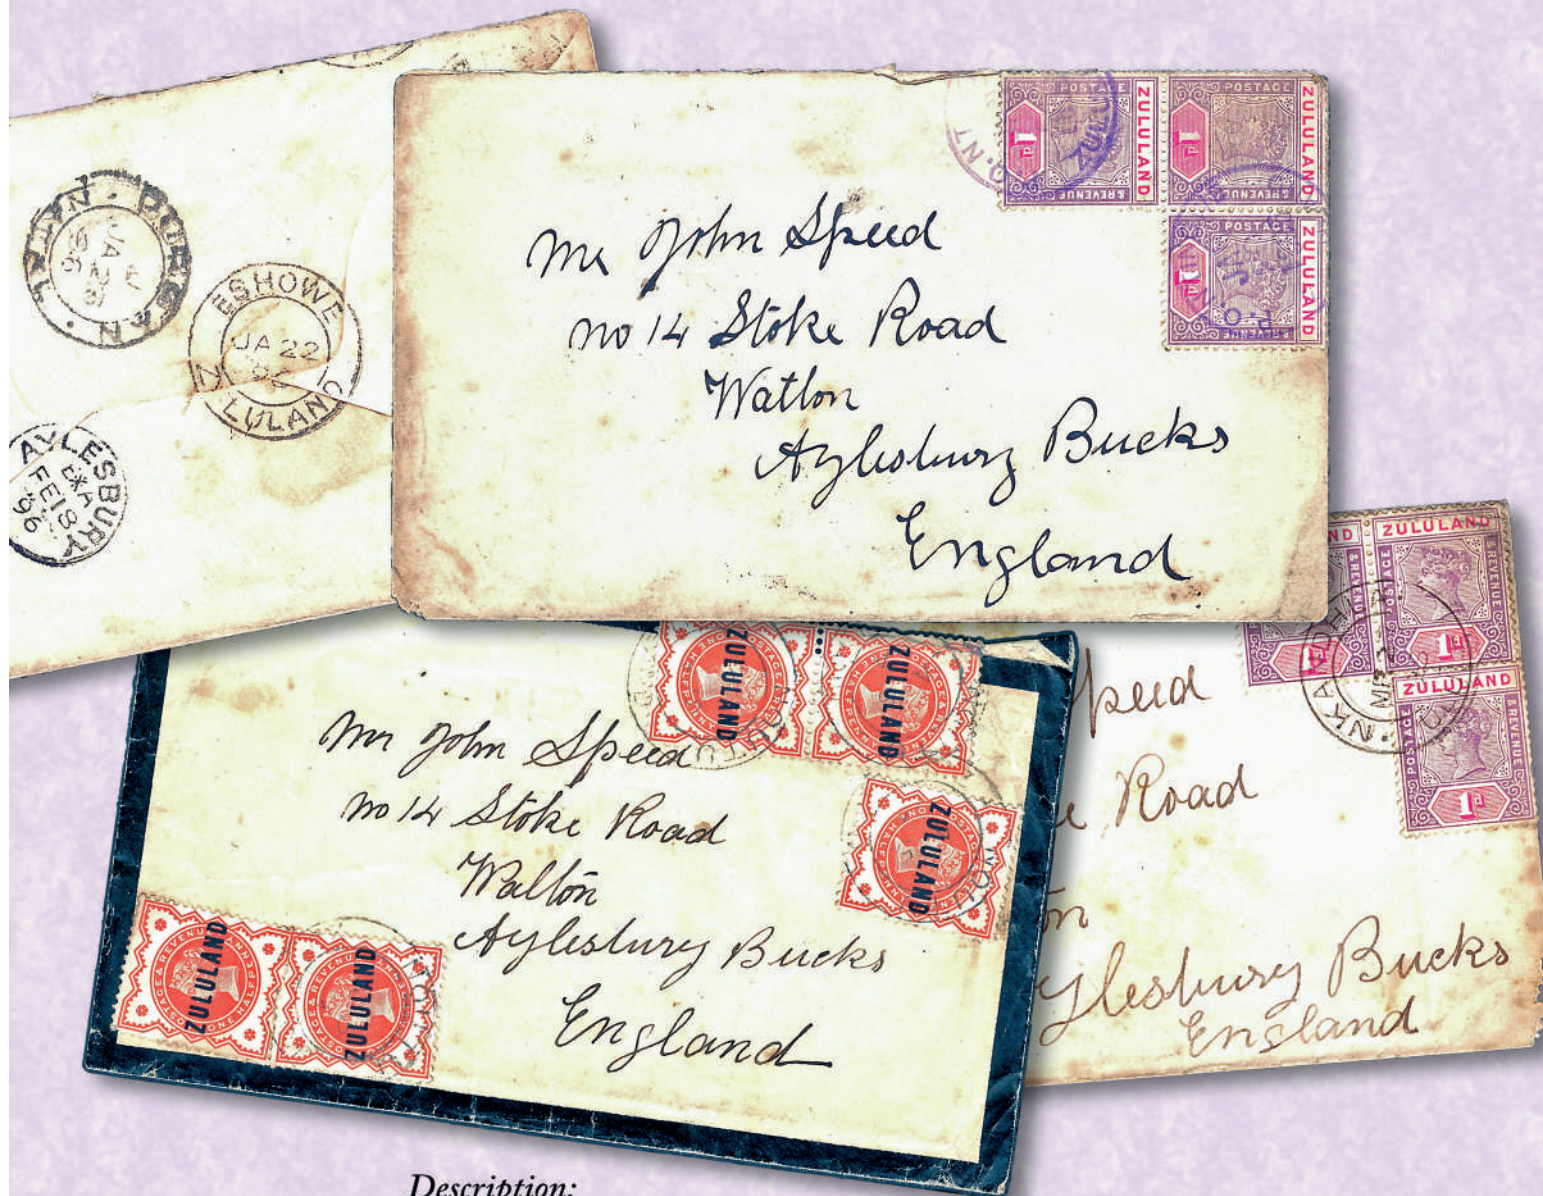 DURBAN · NATAL
JA 26
96
ESHOWE
JA 22
ZULULAND
AYLESBURY
EXA
FE 18
96
POSTAGE
& REVENUE
ZULULAND
1D
POSTAGE
& REVENUE
ZULULAND
1D
POSTAGE
& REVENUE
ZULULAND
1D
Mr John Speed
no 14 Stoke Road
Walton
Aylesbury Bucks
England
ZULULAND
ZULULAND
ZULULAND
ZULULAND
ZULULAND
Mr John Speed
no 14 Stoke Road
Walton
Aylesbury Bucks
England
ND
ZULULAND
POSTAGE
REVENUE
1D
ZULULAND
POSTAGE
REVENUE
1D
Speed
Road
on
Aylesbury Bucks
England
Description: